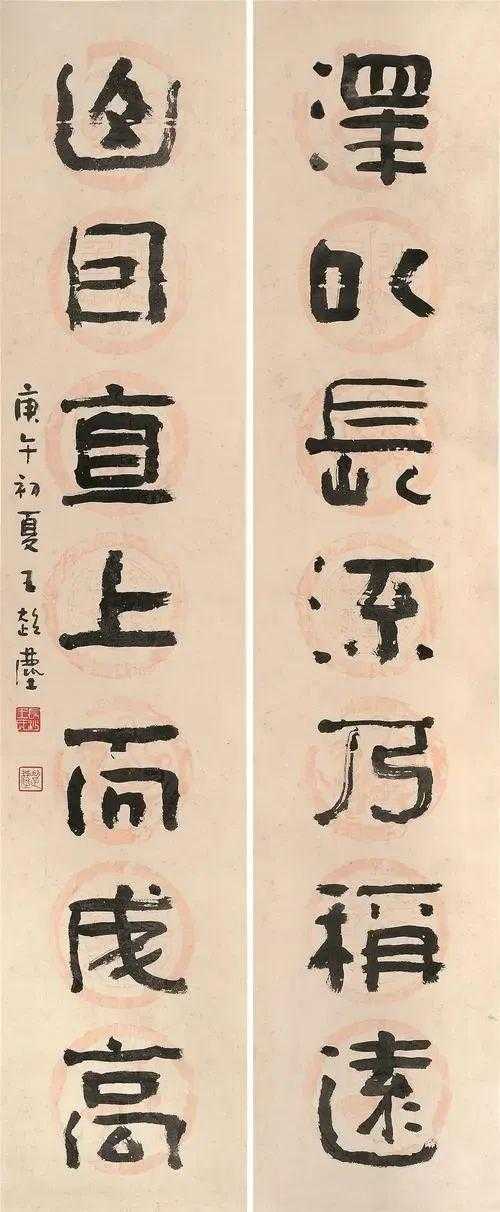 澤以長流乃稱遠
山因直上而成高
庚午初夏王超塵